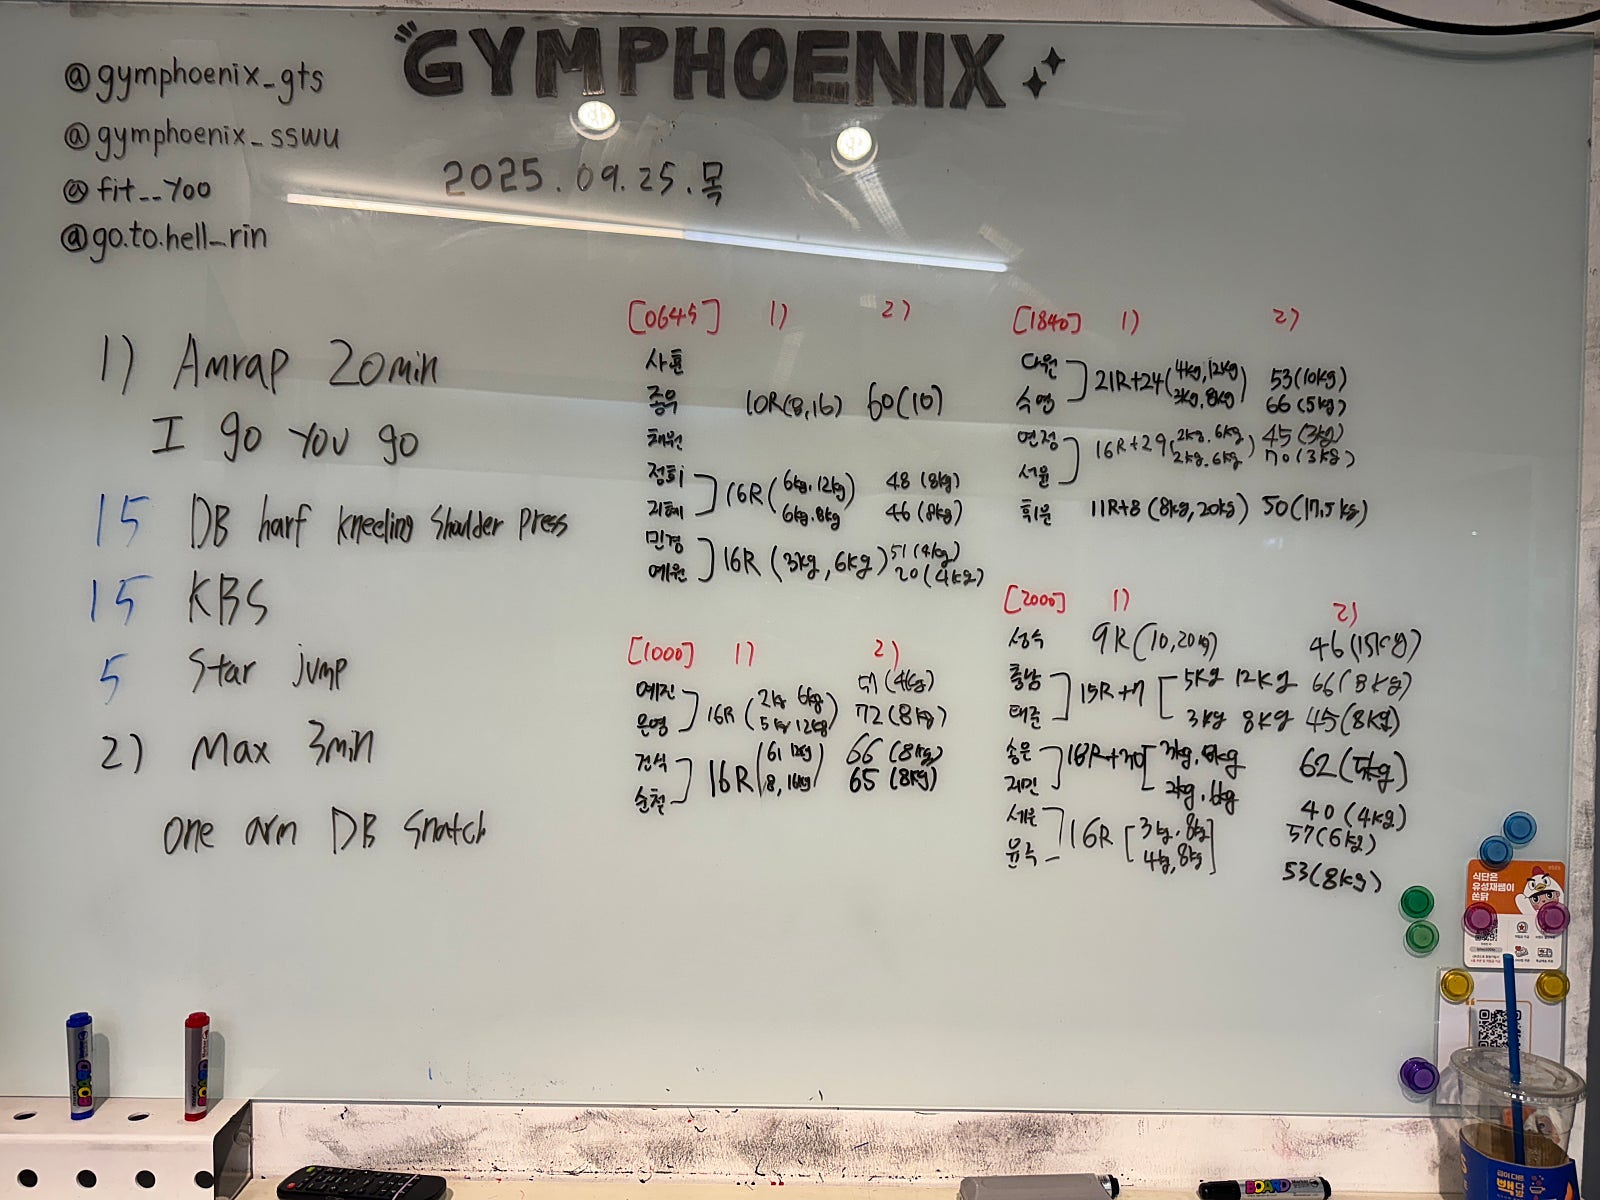 GYMPHOENIX
@gymphoenix_gts
@gymphoenix_sswu
@fit__yoo
@go.to.hell_rin
2025.09.25.목
1) Amrap 20min
I go you go
15 DB harf kneeling shoulder press
15 KBS
5 Star jump
2) Max 3min
one arm DB snatch
[0645] 1) 2)
사훈
종우 10R(8,16) 60(10)
채원
정희 16R (6kg, 12kg) 48 (8kg)
지혜 6kg, 8kg 46 (8kg)
민경 16R (3kg, 6kg) 51 (4kg)
예원 20 (4kg)
[1000] 1) 2)
예진 16R (2kg 6kg) 51 (4kg)
은영 5kg 12kg 72 (8kg)
건식 16R 66 (8kg)
순철 8, 16kg 65 (8kg)
[1840] 1) 2)
다원 21R+24 (4kg, 12kg) 53 (10kg)
숙영 3kg, 8kg 66 (5kg)
연정 16R+29 (2kg, 6kg) 45 (3kg)
서율 2kg, 6kg 70 (3kg)
휘윤 11R+8 (8kg, 20kg) 50 (17.5kg)
[2000] 1) 2)
성숙 9R (10, 20kg) 46 (15kg)
충남 15R+7 [5kg 12kg 66 (8kg)
태준 3kg 8kg 45 (8kg)
송은 62 (5kg)
재민 2kg, 6kg 40 (4kg)
세윤 16R [3kg, 8kg] 57 (6kg)
4kg, 8kg 53 (8kg)
식단은
유성재쌤이
쏜닭
BOARD
BOARD
BOARD